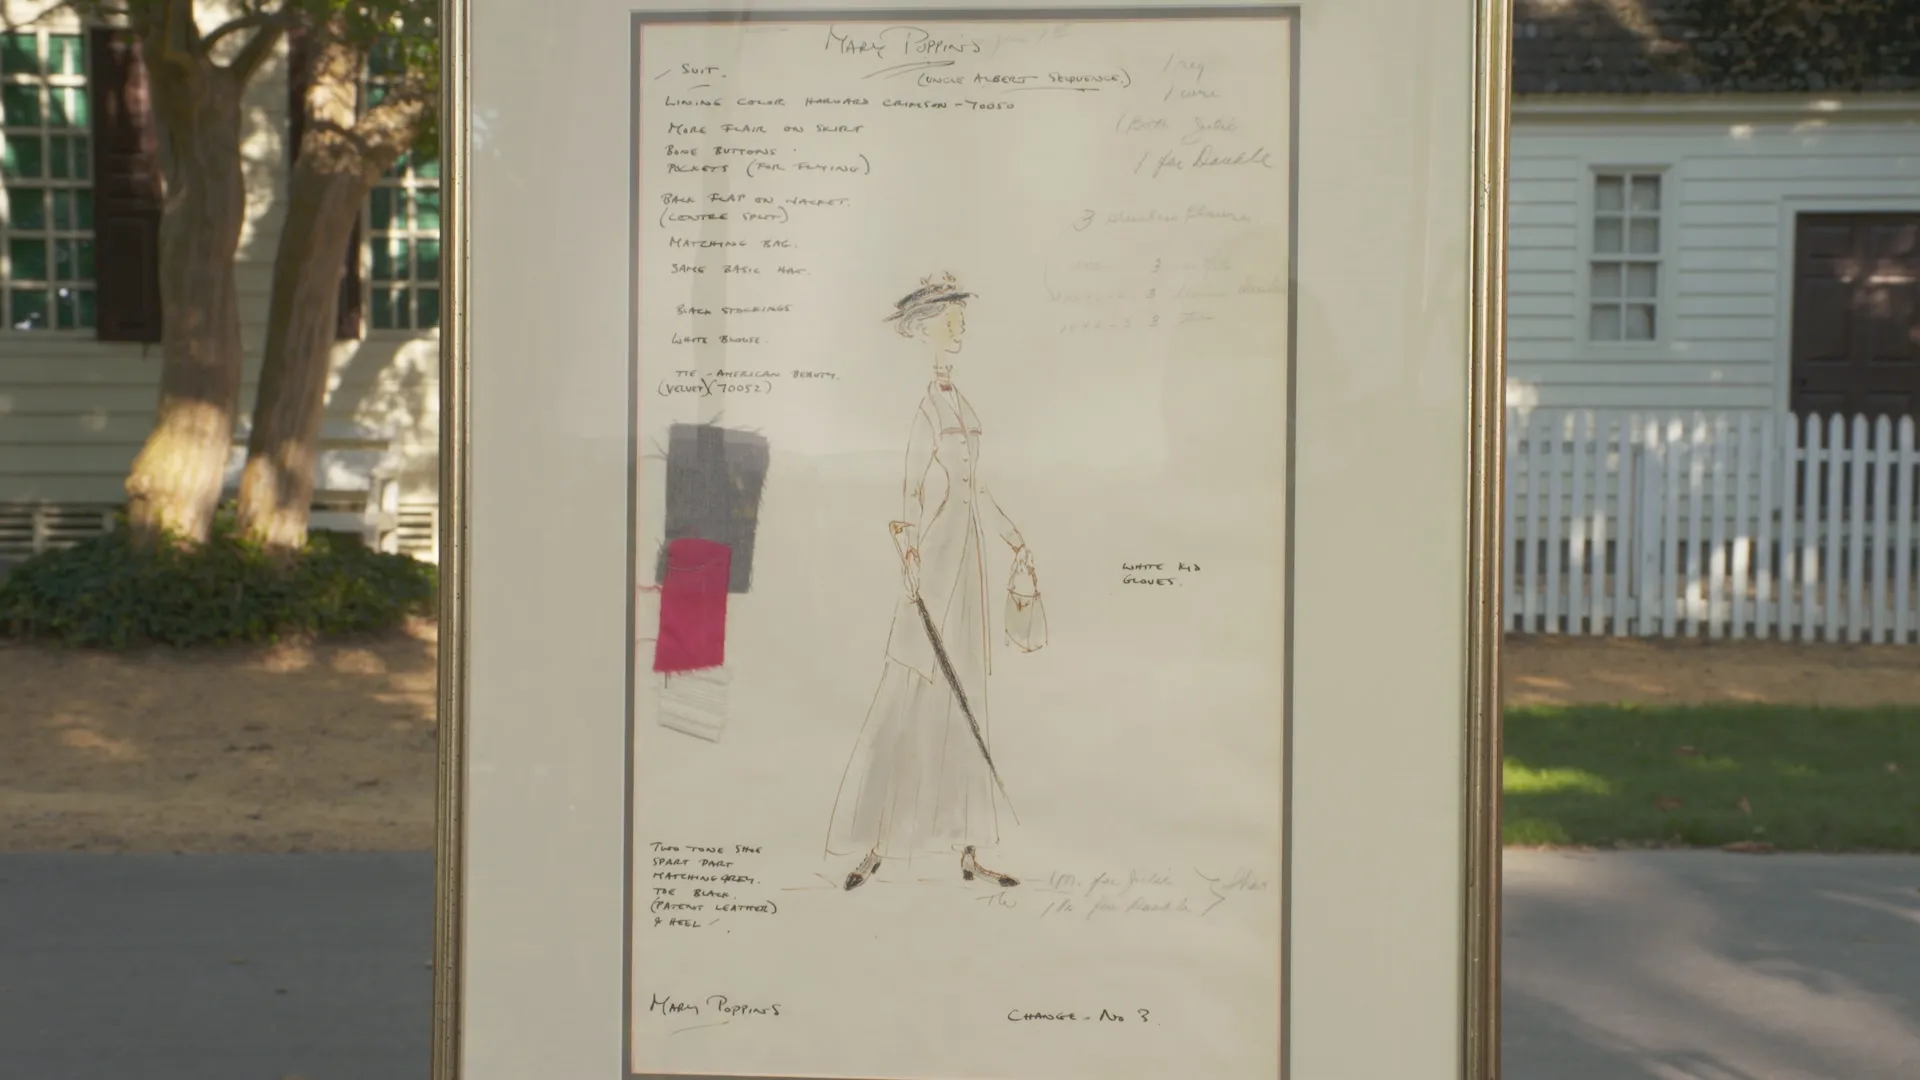 MARY POPPINS
(UNCLE ALBERT SEQUENCE.)
SUIT.
LINING COLOR HARVARD CRIMSON - 70050
MORE FLAIR ON SKIRT
BONE BUTTONS
POCKETS (FOR FLYING)
BACK FLAP ON JACKET.
(CENTRE SPLIT)
MATCHING BAG.
SAME BASIC HAT.
BLACK STOCKINGS
WHITE BLOUSE.
TIE - AMERICAN BEAUTY.
(VELVET)(70052)
1 reg
1 wire
1 Both Julie
1 for Double
3
3
3
3
WHITE KID
GLOVES.
TWO TONE SHOE
SPART PART
MATCHING GREY.
TOE BLACK.
(PATENT LEATHER)
& HEEL
1 pr. for Julie
1 pr for Double
MARY POPPINS
CHANGE - NO 3.